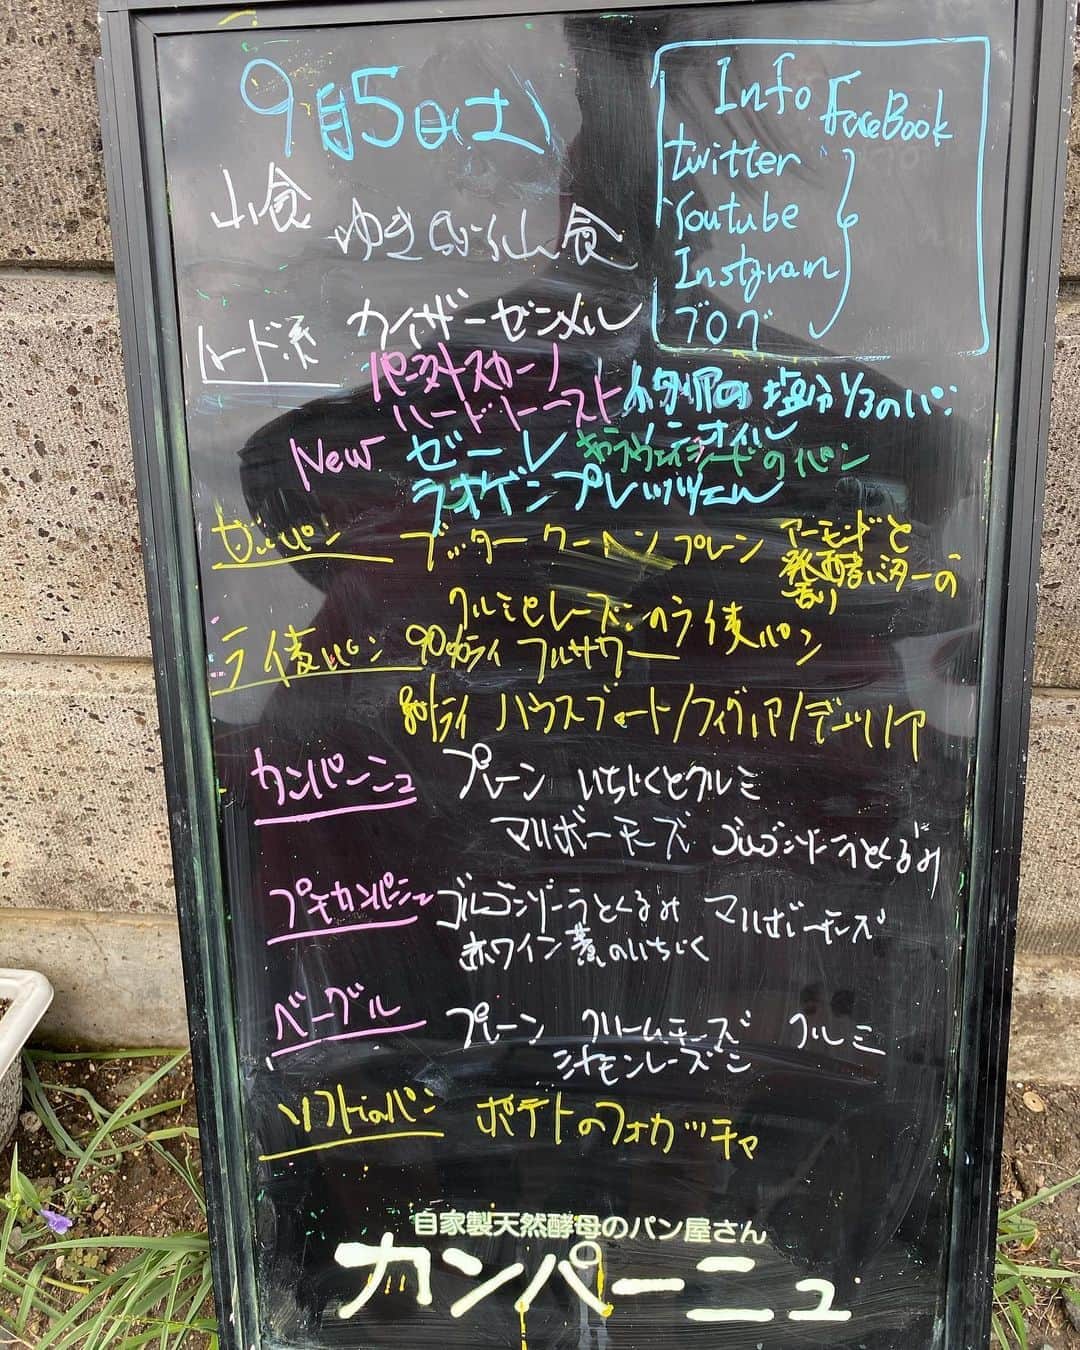 9月5日(土)
Info
FaceBook
twitter
Youtube
Instgram
ブログ
山食 ゆき 山食
ハード系 カイザーゼンメル
ハードトースト 塩分1/3のパン
New ゼーレ キャラウェイシードのパン
ラオゲンプレッツェル
ブッタークーヘン プレーン アーモンドと
発酵バターの
香り
クルミとレーズンのライ麦パン
ライ麦パン 90%ライ フルサワー
80%ライ ハウスブロート/フィグ
カンパーニュ プレーン いちじくとクルミ
マルボーチーズ ゴルゴンゾーラとくるみ
プチカンパーニュ ゴルゴンゾーラとくるみ マルボーチーズ
赤ワイン煮のいちじく
ベーグル プレーン クリームチーズ クルミ
シナモンレーズン
ソフトなパン ポテトのフォカッチャ
自家製天然酵母のパン屋さん
カンパーニュ